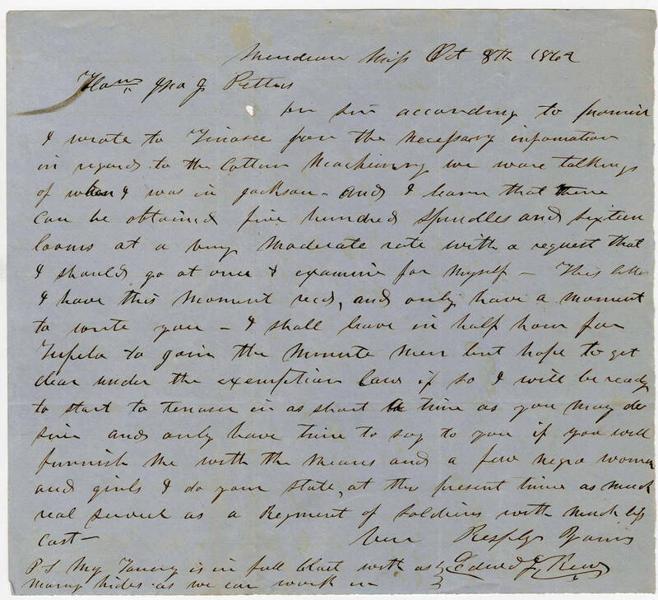 Meridian Miss Oct 8th 1862
Hon Jno J Pettus
Dr sir according to promis
I wrote to Tinasee for the necessary infomation
in regard to the Cotton Machinery we ware talking
of when I was in Jackson - and I learn that there
can be obtained five hundred spindles and sixteen
looms at a very moderate rate with a request that
I should go at once & examine for myself - This letter
I have this moment recd, and only have a moment
to write you - I shall leave in half hour for
Tupelo to join the Minute Men but hope to get
clear under the exemption law if so I will be ready
to start to Tenasee in as short time as you may de
sire and only have time to say to you if you will
furnish me with the means and a few negro women
and girls I do your state, at the present time as much
real service as a Regment of Soldiers with much less
cost - Very Respfly Yours
PS My Tanery is in full blast with as Edwd
many hides as we can work in